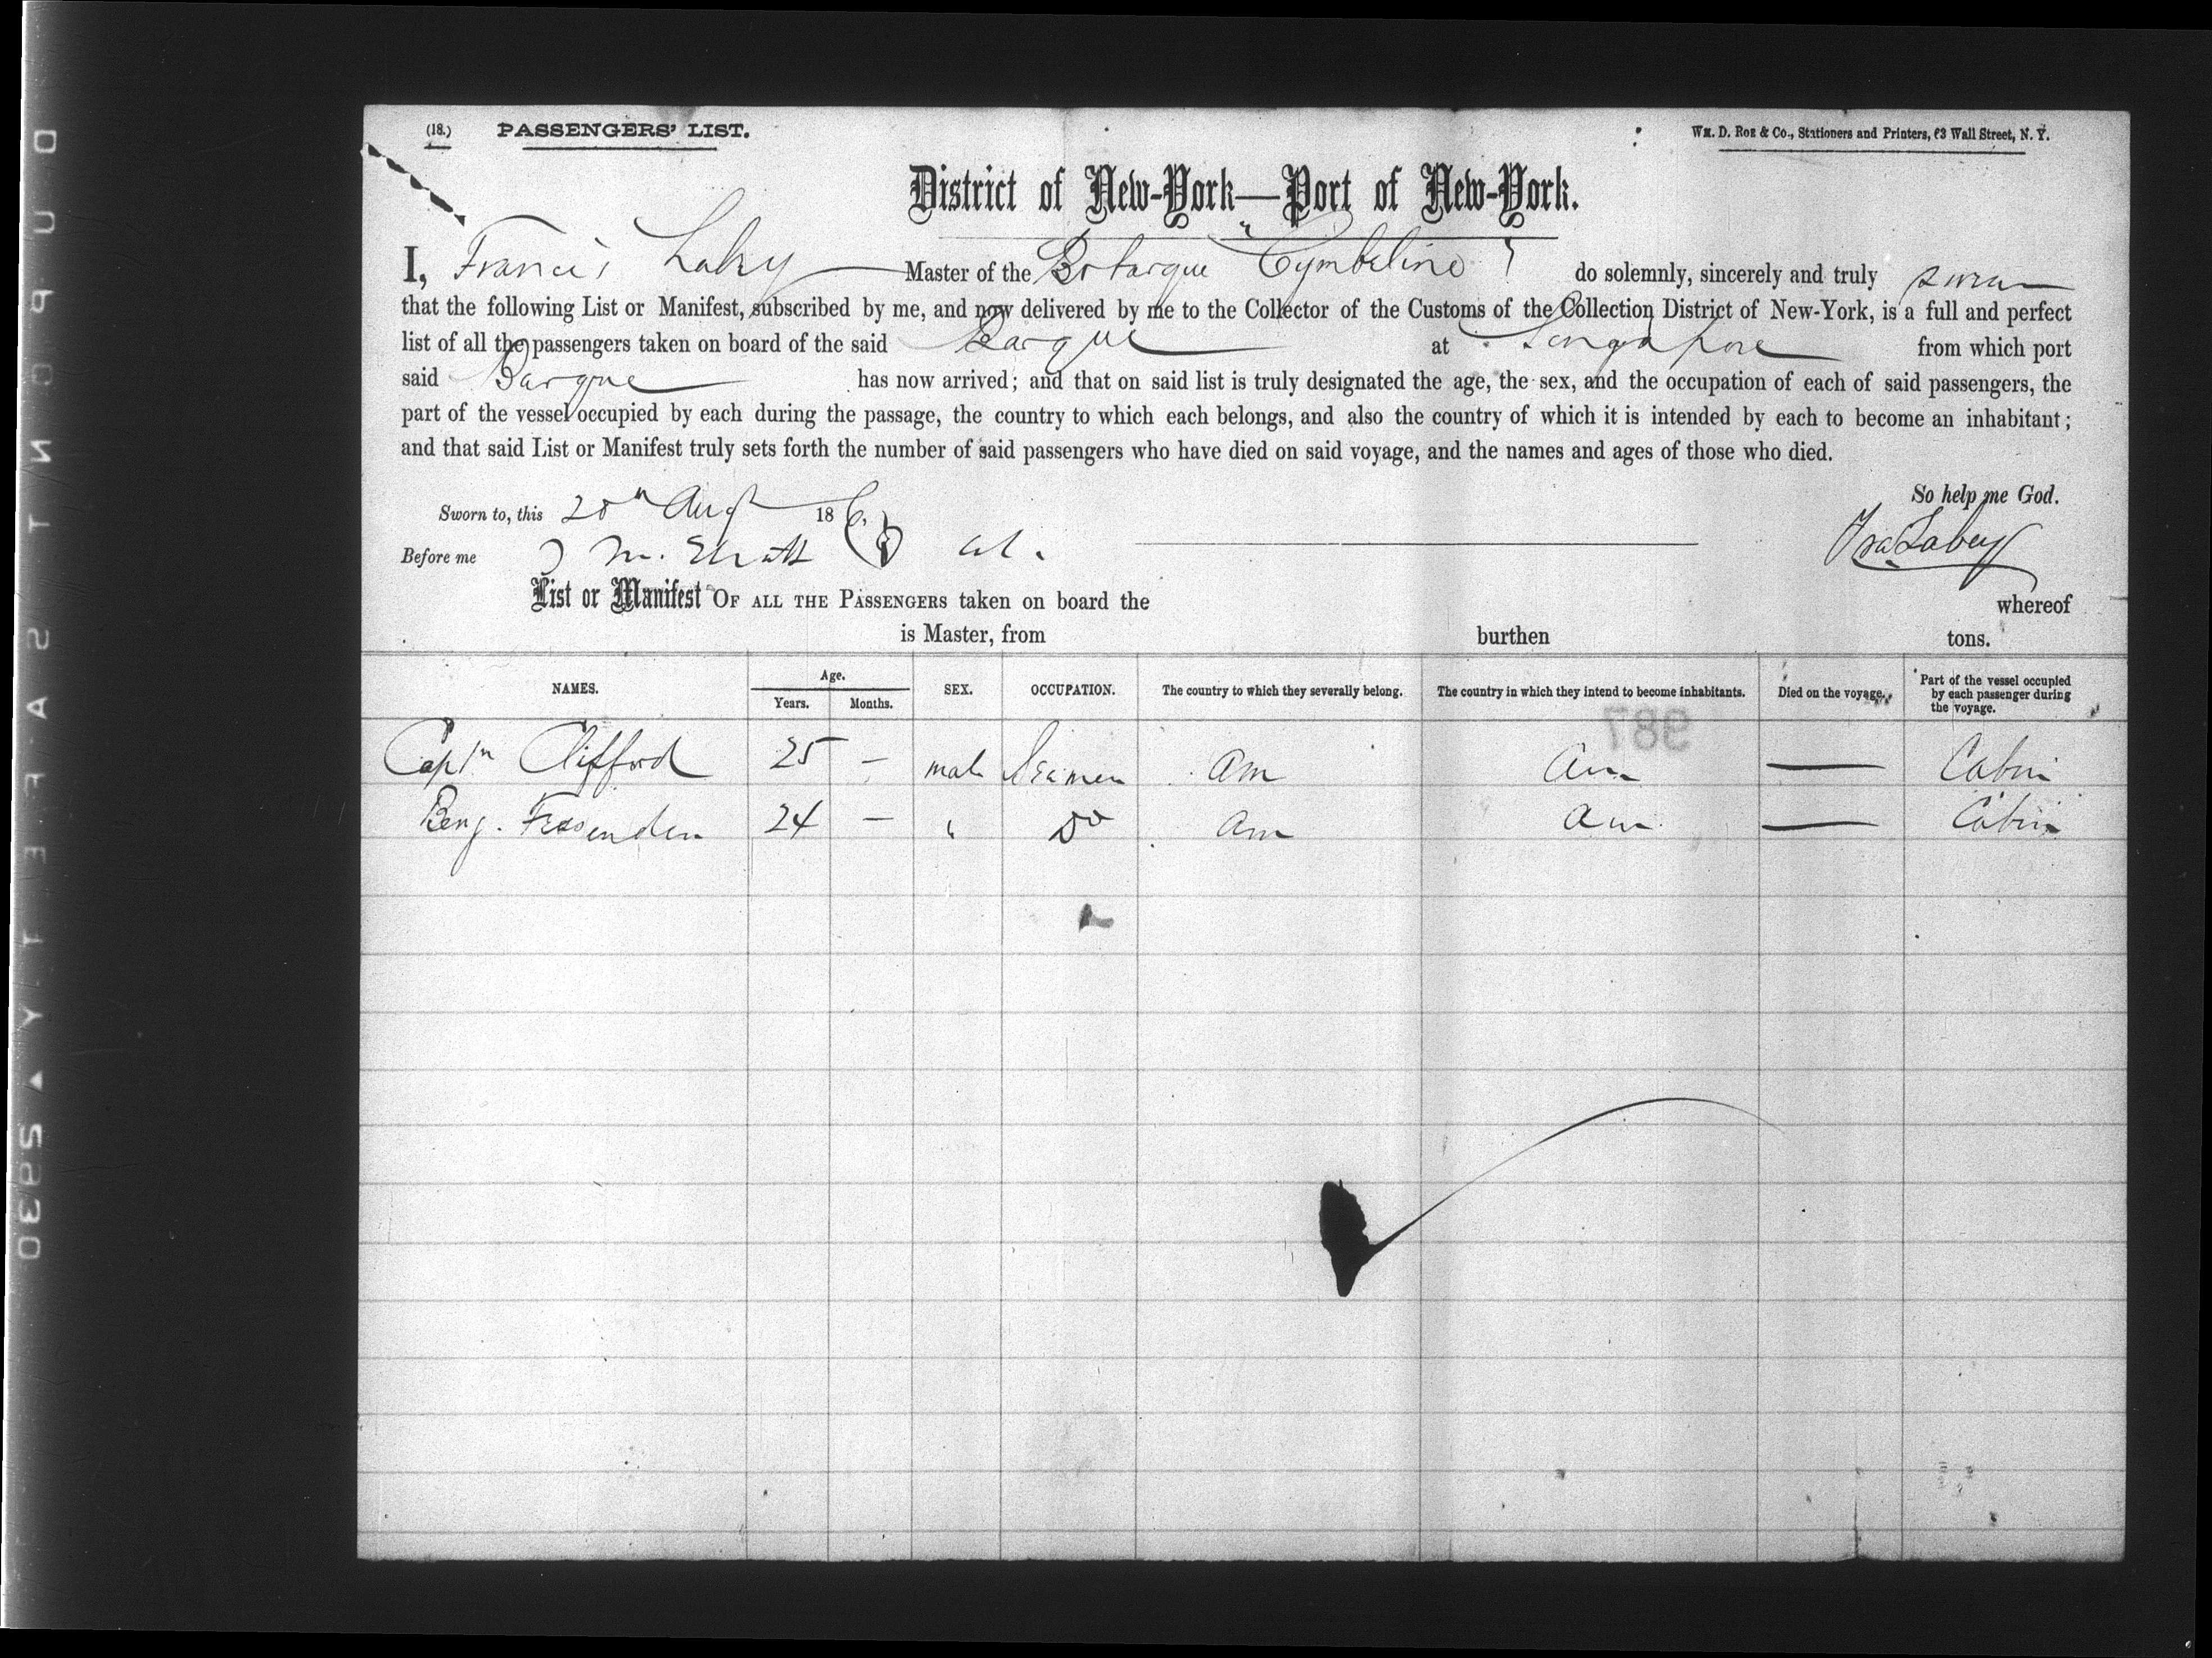 (18.) PASSENGERS' LIST.
WM. D. ROE & Co., Stationers and Printers, 63 Wall Street, N. Y.
District of New-York—Port of New-York.
I, Francis Laby Master of the Br barque Cymbeline do solemnly, sincerely and truly swear
that the following List or Manifest, subscribed by me, and now delivered by me to the Collector of the Customs of the Collection District of New-York, is a full and perfect
list of all the passengers taken on board of the said Barque at Singapore from which port
said Barque has now arrived; and that on said list is truly designated the age, the sex, and the occupation of each of said passengers, the
part of the vessel occupied by each during the passage, the country to which each belongs, and also the country of which it is intended by each to become an inhabitant;
and that said List or Manifest truly sets forth the number of said passengers who have died on said voyage, and the names and ages of those who died.
So help me God.
Sworn to, this 20th Augt 186
Fra Labey
Before me
List or Manifest OF ALL THE PASSENGERS taken on board the whereof
is Master, from burthen tons.
NAMES. Age. Years. Months. SEX. OCCUPATION. The country to which they severally belong. The country in which they intend to become inhabitants. Died on the voyage. Part of the vessel occupied by each passenger during the voyage.
987
Captn Clifford 25 – male Seamen Am Am — Cabin
Benj. Fessenden 24 – " Do Am Am — Cabin
DUPONT SAFETY ▲ 2930